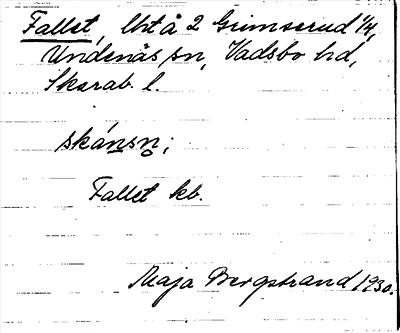 Fallet, lht å 2 Grimserud 1/4,
Undenäs sn, Vadsbo hd,
Skarab. l.
skánsn;
Fallet kb.
Maja Bergstrand 1930.